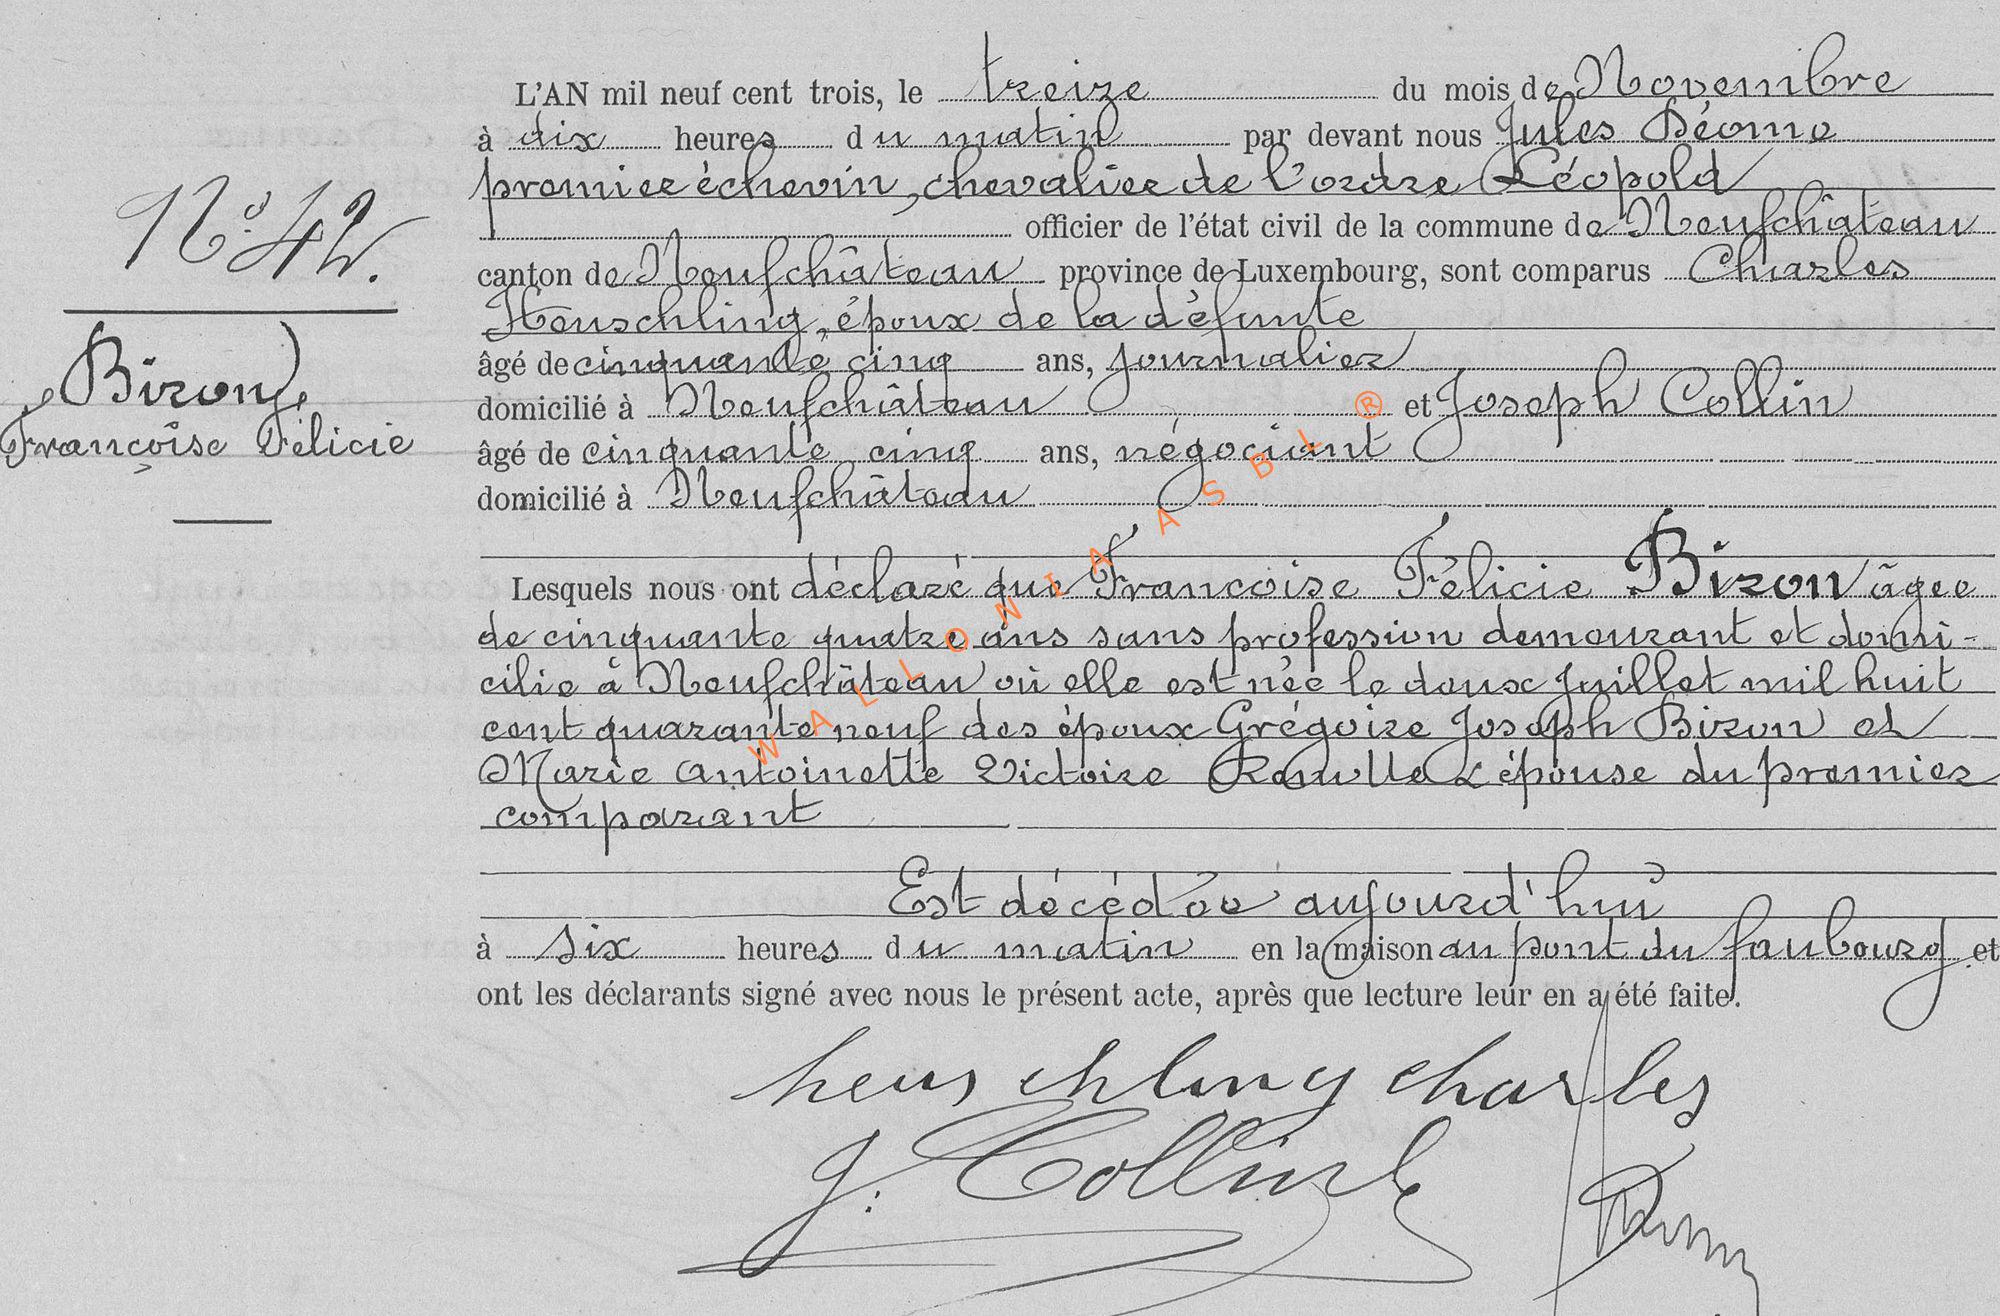 L'AN mil neuf cent trois, le treize du mois de Novembre
à dix heures du matin par devant nous Jules Déome
premier échevin, chevalier de l'ordre Léopold
officier de l'état civil de la commune de Neufchâteau
canton de Neufchâteau province de Luxembourg, sont comparus Charles
Heuschling, époux de la défunte
âgé de cinquante cinq ans, journalier
domicilié à Neufchâteau et Joseph Collin
âgé de cinquante cinq ans, négociant
domicilié à Neufchâteau
N° 42.
Biron,
Françoise Félicie
Lesquels nous ont déclaré que Francoise Félicie Biron âgée
de cinquante quatre ans sans profession demeurant et domi-
cilie à Neufchâteau où elle est née le deux Juillet mil huit
cent quarante neuf des époux Grégoire Joseph Biron et
Marie Antoinette Victoire épouse du premier
comparant
Est décédée aujourd'hui
à six heures du matin en la maison au pont du faubourg et
ont les déclarants signé avec nous le présent acte, après que lecture leur en a été faite.
heuschling charles
J. Collin
WALLONIA ASBL ®